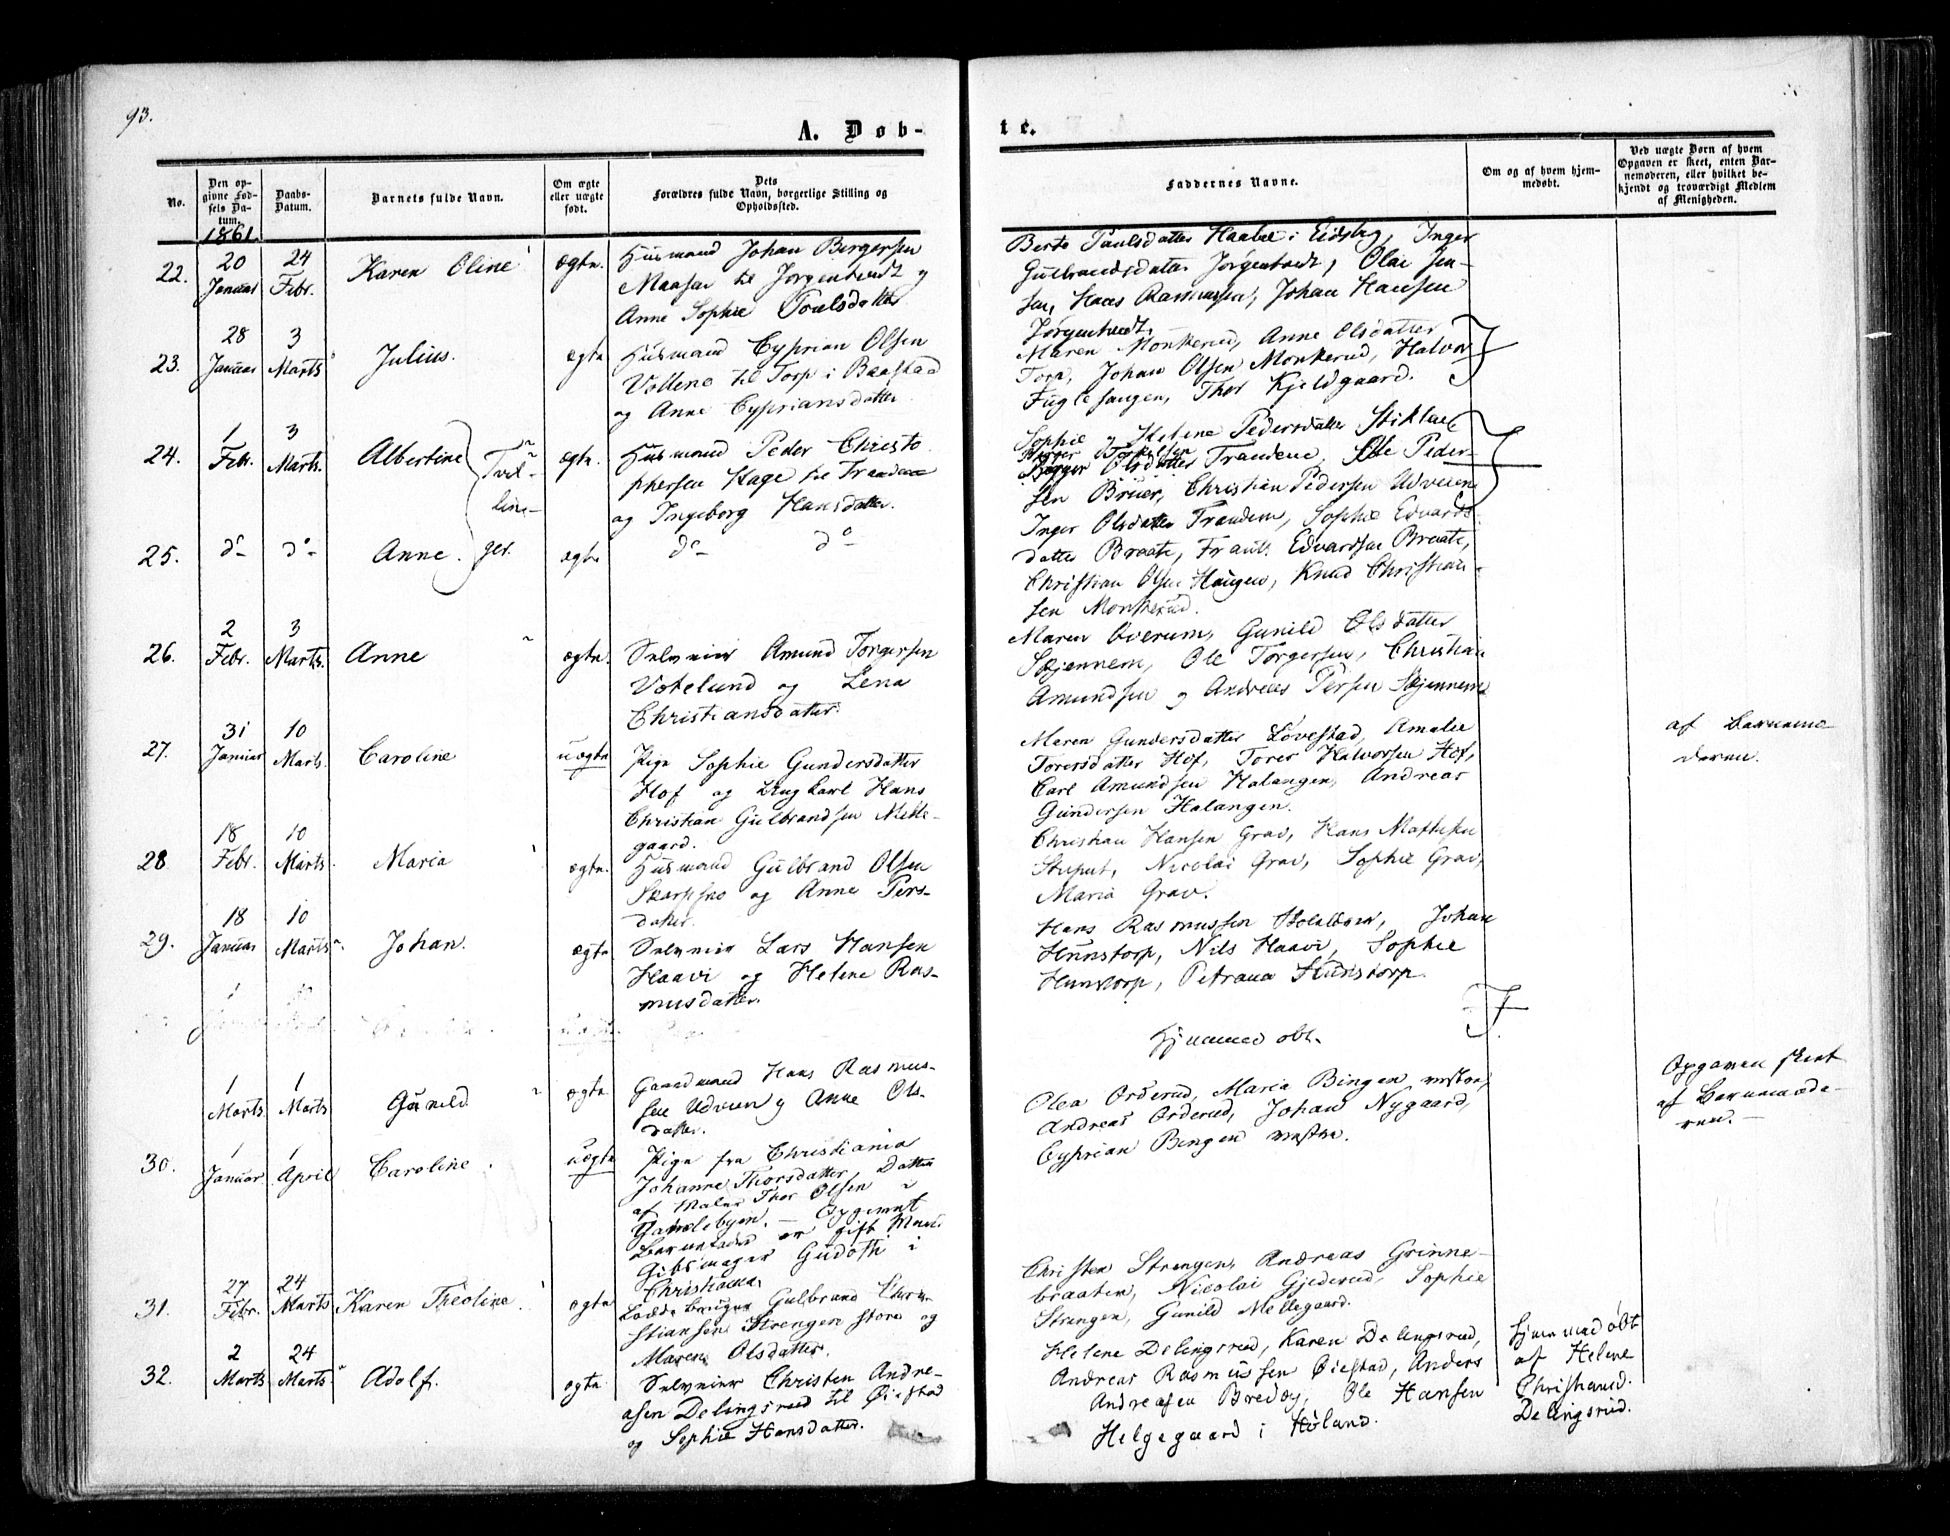 93.
A. Døb-
te.
No.
Den op-
givne Fød-
sels Da-
tum.
Daabs-
Datum.
Barnets fulde Navn.
Om ægte
eller uægte
født.
Dets
Forældres fulde Navn, borgerlige Stilling og
Opholdssted.
Faddernes Navne.
Om og af hvem hjem-
medøbt.
Ved uægte Børn af hvem
Opgaven er skeet, enten Bar-
nemoderen, eller hvilket be-
kjendt og troværdigt Medlem
af Menigheden.
1861
22.
20
Januar
24
Febr.
Karen Oline
ægte.
Husmand Johan Børgersen
til Jørgentvedt og
Anne Sophie Poulsdatter
Berte Paulsdatter i Eidsbg, Inger
Gulbrandsdatter Jørgentvedt, Olai Jen-
sen, Hans Rasmussen, Johan Hansen
Jørgentvedt.
23.
28
Januar
3
Marts
Julius.
ægte
Husmand Cyprian Olsen
Vollene til Torp i Baastad
og Anne Cypriansdatter
Maren Monkerud, Anne Olsdatter
Torp, Johan Olsen Monkerud, Halvor
Fuglesangen, Thor Kjeldgaard.
24.
1
Febr.
3
Marts.
Albertine
Tvil-
lin-
ger.
ægte.
Husmand Peder Christo
phersen Hage til Trandem
og Ingeborg Hansdatter.
Sophie og Helene Pedersdatter
Olsdatter Trandem, Ole Peder-
sen Bruer, Christian Pedersen Udveien
25.
do
do
Anne.
ægte
do do
Inger Olsdatter Trandem, Sophie Edvards-
datter Braate, Frants Edvardsen Braate,
Christian Olsen Haugen, Knud Christian-
sen Monkerud.
26.
2
Febr.
3
Marts.
Anne
ægte.
Selveier Amund Torgersen
Votelund og Lena
Christiansdatter.
Maren Overum, Gunild Olsdatter
Skjennem, Ole Torgersen, Christian
Amundsen og Andreas Persen Skjennem
27.
31
Januar
10
Marts
Caroline
uægte
Pige Sophie Gundersdatter
Hof og Ungkarl Hans
Christian Gulbrandsen Melle-
gaard.
Maren Gundersdatter Løvestad, Amalie
Torersdatter Hof, Torer Halvorsen Hof,
Carl Amundsen Halangen, Andreas
Gundersen Halangen.
af Barnemo
deren.
28
18
Febr.
10
Marts.
Maria
ægte.
Husmand Gulbrand Olsen
Skarpsno og Anne Pers-
datter.
Christian Hansen Grav, Hans Mathisen
Stuput, Nicolai Grav, Sophie Grav,
Maria Grav.
29.
18
Januar
10
Marts
Johan.
ægte
Selveier Lars Hansen
Haavi og Helene Ras-
musdatter.
Hans Rasmussen Johan
Hunstorp, Nils Haavi, Sophie
Hunstorp, Petraua Hunstorp.
1
Marts
1
Marts
Gunild
ægte
Gaardmand Hans Rasmus-
sen Udveien og Anne Ols-
datter.
Hjemmedøbt.
30.
1
Januar
1
April
Caroline.
uægte
Pige fra Christiania
Johanne Thorsdatter, Datter
af Maler Thor Olsen i
Gamlebyen. — Opgivet
Barnefader er gift Mand
Gibsmager Gudothi i
Christiania.
Olea Orderud, Maria Bingen vestre,
Andreas Orderud, Johan Nygaard,
Cyprian Bingen vestre.
Opgaven skeet
af Barnemode-
ren. —
31.
27
Febr.
24
Marts
Karen Theoline.
ægte
Gulbrand Chri-
stiansen Strengen store og
Maren Olsdatter.
Christen Strengen, Andreas Grinne-
braaten, Nicolai Gjederud, Sophie
Strengen, Gunild Mellegaard.
32.
2
Marts
24
Marts
Adolf.
ægte.
Selveier Christen Andre-
asen Delingsrud til Øiestad
og Sophie Hansdatter.
Helene Delingsrud, Karen Delingsrud,
Andreas Rasmussen Øiestad, Anders
Andreasen Bredby, Ole Hansen
Helgegaard i Høland.
Hjemmedøbt
af Helene
Christiansd.
Delingsrud.